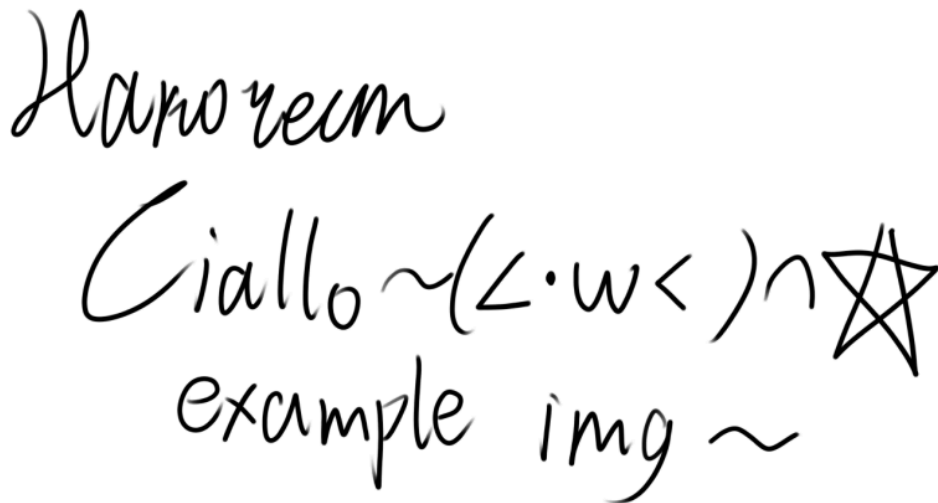 Hanorecm
Ciallo~(∠·w< )∩☆
example img~